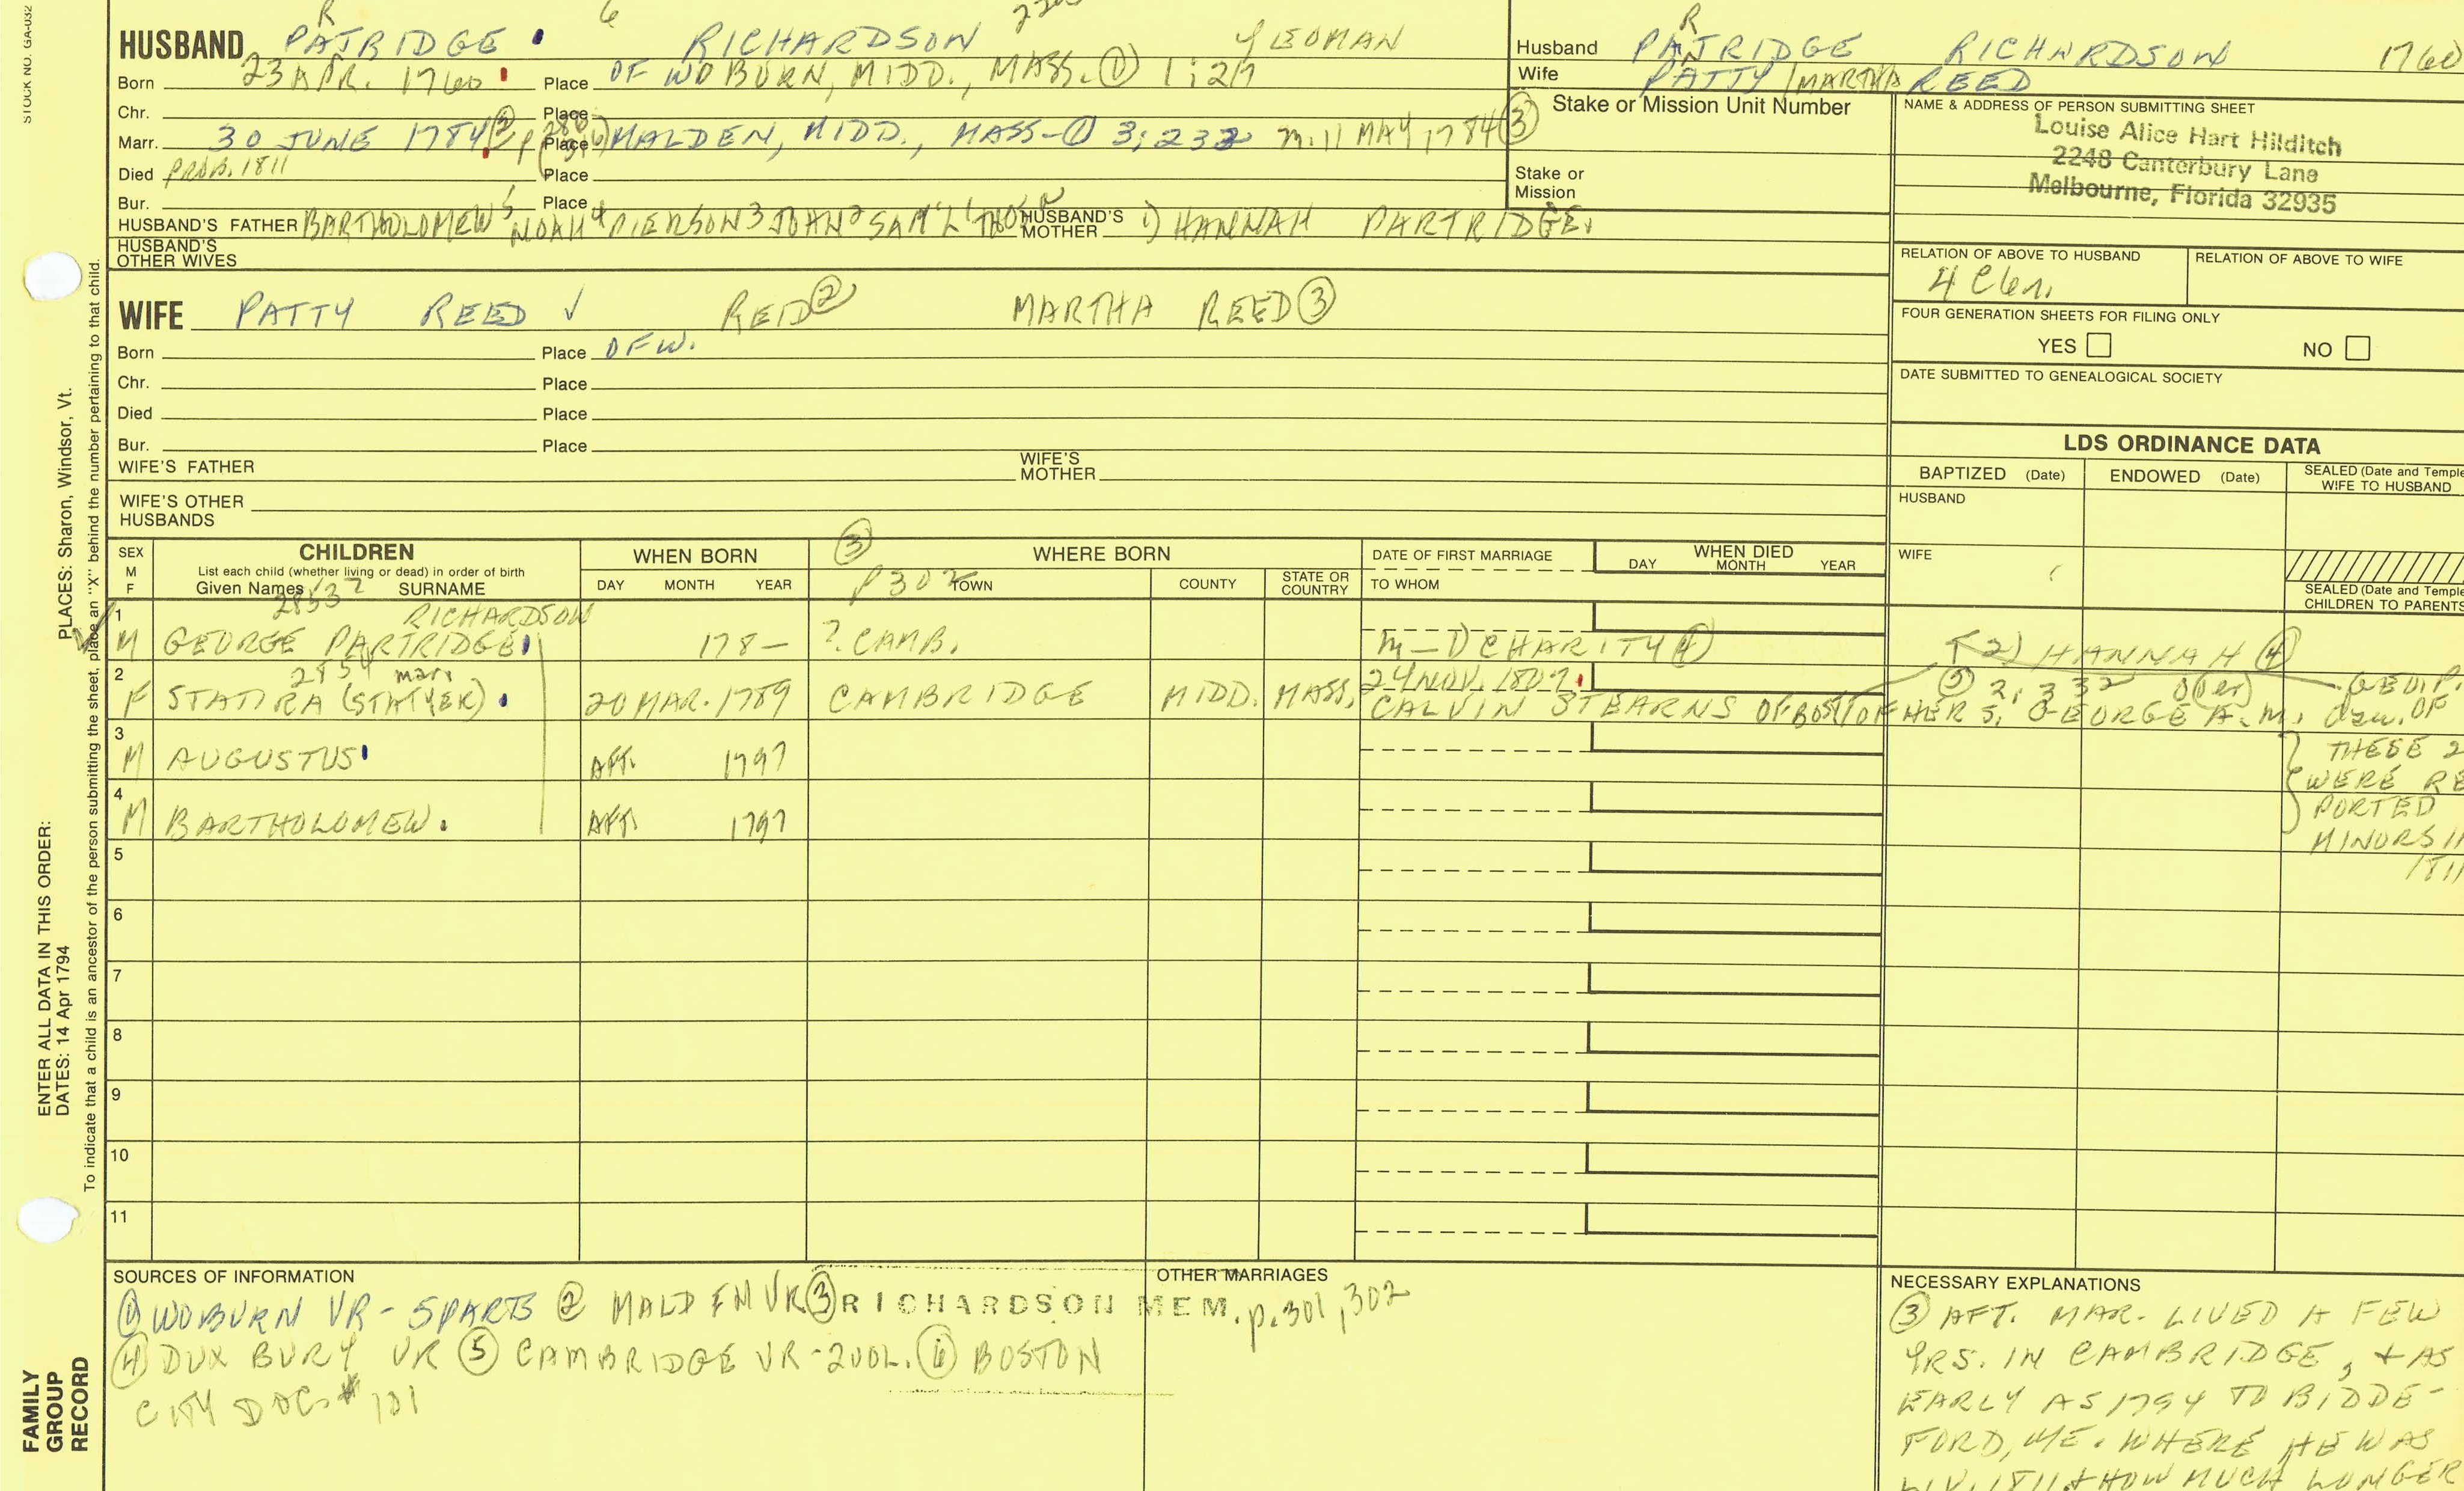 STOCK NO. GA-032
HUSBAND PATRIDGE R 6 RICHARDSON YEOMAN
Born 23 APR. 1760 Place OF WOBURN, MIDD., MASS. ① 1:217
Chr. Place
Marr. 30 JUNE 1784 ② Place MALDEN, MIDD., MASS-① 3:232 m.i. 11 MAY 1784 ③
Died PROB. 1811 Place
Bur. Place
HUSBAND'S FATHER BARTHOLOMEW 5 NOAH 4 PIERSON 3 JOHN 2 SAM'L 1 HUSBAND'S MOTHER 1) HANNAH PARTRIDGE
HUSBAND'S OTHER WIVES
Husband PATRIDGE R RICHARDSON 1760
Wife PATTY / MARTHA REED
Stake or Mission Unit Number
Stake or Mission
NAME & ADDRESS OF PERSON SUBMITTING SHEET
Louise Alice Hart Hilditch
2248 Canterbury Lane
Melbourne, Florida 32935
RELATION OF ABOVE TO HUSBAND RELATION OF ABOVE TO WIFE
WIFE PATTY REED ✓ REID ② MARTHA REED ③
Born Place OF W.
Chr. Place
Died Place
Bur. Place
WIFE'S FATHER WIFE'S MOTHER
WIFE'S OTHER HUSBANDS
FOUR GENERATION SHEETS FOR FILING ONLY
YES NO
DATE SUBMITTED TO GENEALOGICAL SOCIETY
LDS ORDINANCE DATA
BAPTIZED (Date) ENDOWED (Date) SEALED (Date and Temple
WIFE TO HUSBAND
HUSBAND
WIFE
SEALED (Date and Temple
CHILDREN TO PARENTS
SEX M F
CHILDREN
List each child (whether living or dead) in order of birth
Given Names SURNAME
WHEN BORN
DAY MONTH YEAR
③ WHERE BORN
P 302 TOWN COUNTY STATE OR COUNTRY
DATE OF FIRST MARRIAGE
TO WHOM
WHEN DIED
DAY MONTH YEAR
2853 RICHARDSON
1 M GEORGE PARTRIDGE 178– ? CAMB. m–1) CHARITY ④ 2) HANNAH ④
2854 marr
2 F STATIRA (STATYER) 20 MAR. 1789 CAMBRIDGE MIDD. MASS. 24 NOV. 1807
CALVIN STEARNS OF BOST
⑤ 2:332 (over)
3 M AUGUSTUS AFT. 1797
4 M BARTHOLOMEW AFT. 1797
THESE 2
WERE RE
PORTED
MINORS
1811
5
6
7
8
9
10
11
SOURCES OF INFORMATION
① WOBURN VR - 5 PARTS ② MALD VR ③ RICHARDSON MEM. p. 301, 302
④ DUXBURY VR ⑤ CAMBRIDGE VR - 2 VOL. ⑥ BOSTON
CITY DOC. # 101
OTHER MARRIAGES
NECESSARY EXPLANATIONS
③ AFT. MAR. LIVED A FEW
YRS. IN CAMBRIDGE, + AS
EARLY AS 1794 TO BIDDE-
FORD, ME. WHERE HE WAS
LIV. 1811 + HOW MUCH LONGER
PLACES: Sharon, Windsor, Vt.
ENTER ALL DATA IN THIS ORDER:
DATES: 14 Apr 1794
To indicate that a child is an ancestor of the person submitting the sheet, place an "X" behind the number pertaining to that child.
FAMILY
GROUP
RECORD